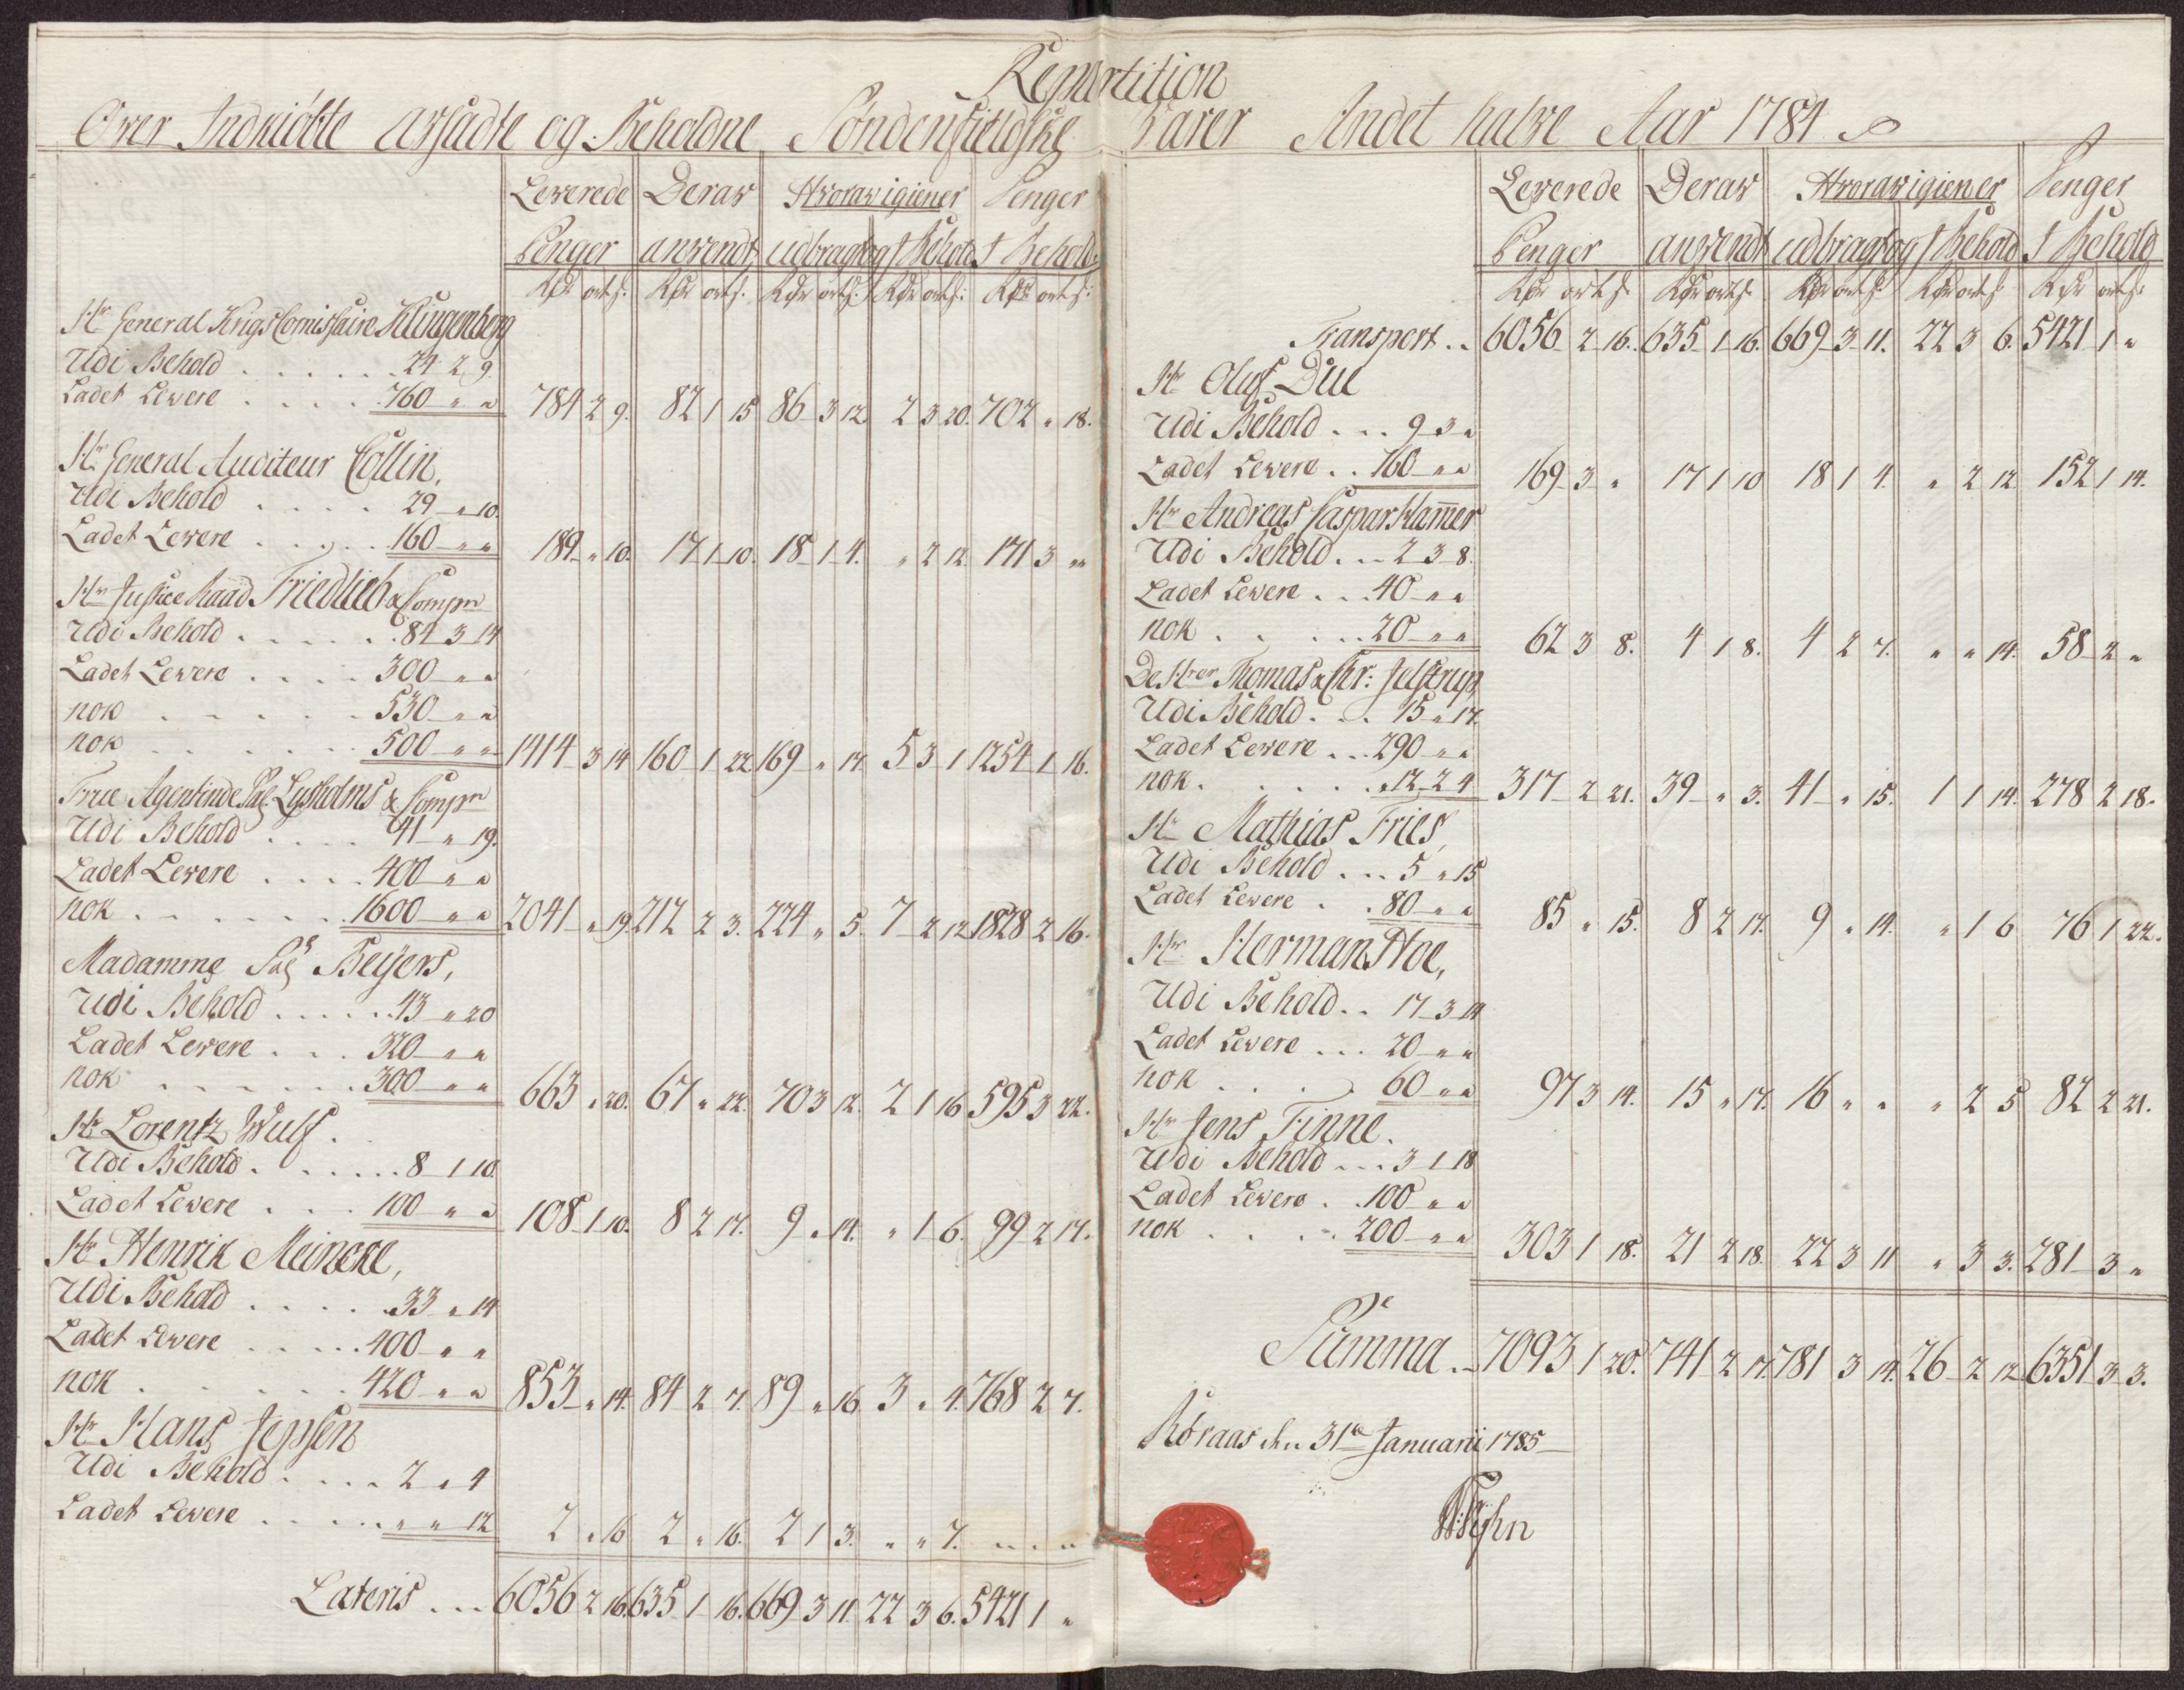 Repartition
Over Indkiöbte afsadte og Beholdne Söndenfieldske Varer Andet halve Aar 1784
Leverede Derav Hvoravigiener Penger
Penger anvendt udbragt og I Behold I Behold
Rdr ort s: Rdr ort s: Rdr ort s: Rdr ort s: Rdr ort s:
Hr General Krigs Comissaire Klingenberg
Udi Behold . . . . . 24 2 9.
Ladet Levere . . . . 760 " " 784 2 9. 82 1 15 86 3 12 2 3 20. 702 " 18.
Hr. General Auditeur Collin,
Udi Behold . . . . 29 " 10.
Ladet Levere . . . . 160 " " 189 " 10. 17 1 10. 18 1 4. " 2 12. 171 3 "
Hr Justice Raad Friedlieb & Compn
Udi Behold . . . . . 84 3 14
Ladet Levere . . . . 300 " "
nok . . . . . 530 " "
nok . . . . . 500 " " 1414 3 14 160 1 22 169 " 17. 5 3 1 1254 1 16.
Frue Agentinde Sal. Lysholms & Compn
Udi Behold . . . . 41 " 19.
Ladet Levere . . . . 400 " "
nok . . . . . . 1600 " " 2041 " 19 212 2 3. 224 " 5. 7 2 12 1828 2 16.
Madamme Sal Beyers,
Udi Behold . . . . . 43 " 20
Ladet Levere . . . 320 " "
nok . . . . . . 300 " " 663 " 20. 67 " 22. 70 3 12. 2 1 16 595 3 22.
Hr Lorentz Wulf.
Udi Behold . . . . . . 8 1 10.
Ladet Levere . . . 100 " " 108 1 10. 8 2 17. 9 " 14. " 1 6. 99 2 17.
Hr Henrik Meincke,
Udi Behold . . . . . 33 " 14
Ladet Levere . . . . . 400 " "
nok . . . . . . 420 " " 853 " 14. 84 2 7. 89 " 16 3 " 4. 768 2 7.
Hr Hans Jepsen
Udi Behold . . . . 2 " 4
Ladet Levere . . . . " " 12 2 " 16 2 " 16. 2 1 3. " " 7. " " "
Lateris . . . 6056 2 16. 635 1 16. 669 3 11. 22 3 6. 5421 1 "
Leverede Derav Hvoravigiener Penger
Penger anvendt udbragt og I Behold I Behold
Rdr ort s: Rdr ort s: Rdr ort s: Rdr ort s: Rdr ort s:
Transport . . 6056 2 16. 635 1 16. 669 3 11. 22 3 6. 5421 1 "
Hr Oluf Due
Udi Behold . . . 9 3 "
Ladet Levere . . 160 " " 169 3 " 17 1 10 18 1 4. " 2 12 152 1 14.
Hr Andreas Caspar Hamer
Udi Behold . . . 2 3 8.
Ladet Levere . . . 40 " "
nok . . . . . 20 " " 62 3 8. 4 1 8. 4 2 7. " " 14. 58 2 "
De Hrer Thomas & Chr: Jelstrup
Udi Behold . . . 15 " 17.
Ladet Levere . . . 290 " "
nok . . . . . . 12 2 4 317 2 21. 39 " 3. 41 " 15. 1 1 14. 278 2 18.
Hr Mathias Fries,
Udi Behold . . . 5 " 15
Ladet Levere . . 80 " " 85 " 15. 8 2 17. 9 " 14. " 1 6 76 1 22.
Hr Herman Hoe,
Udi Behold . . 17 3 14
Ladet Levere . . . 20 " "
nok . . . . 60 " " 97 3 14. 15 " 17. 16 " " " 2 5 82 2 21.
Hr Jens Finne.
Udi Behold . . . 3 1 18
Ladet Levere . . 100 " "
nok . . . . 200 " " 303 1 18. 21 2 18. 22 3 11 " 3 3. 281 3 "
Summa . . 7093 1 20. 741 2 17. 781 3 14. 26 2 12 6351 3 3.
Röraas den 31te Januarii 1785